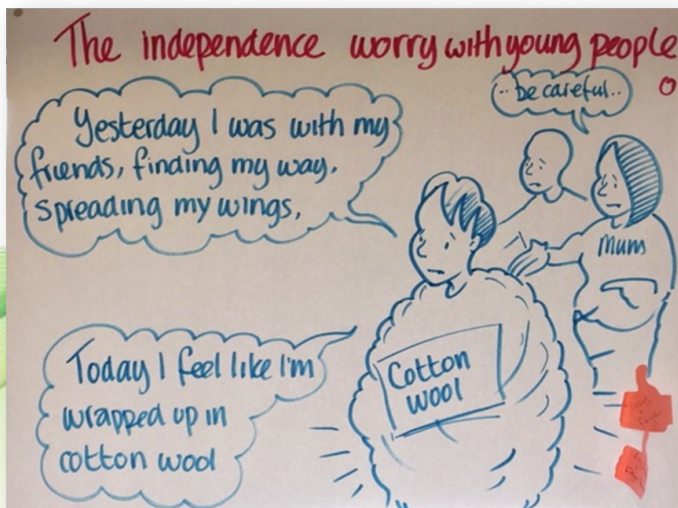 The independence worry with young people
.. be careful..
Yesterday I was with my
friends, finding my way,
spreading my wings,
Mum
Today I feel like I'm
wrapped up in
cotton wool
Cotton
wool